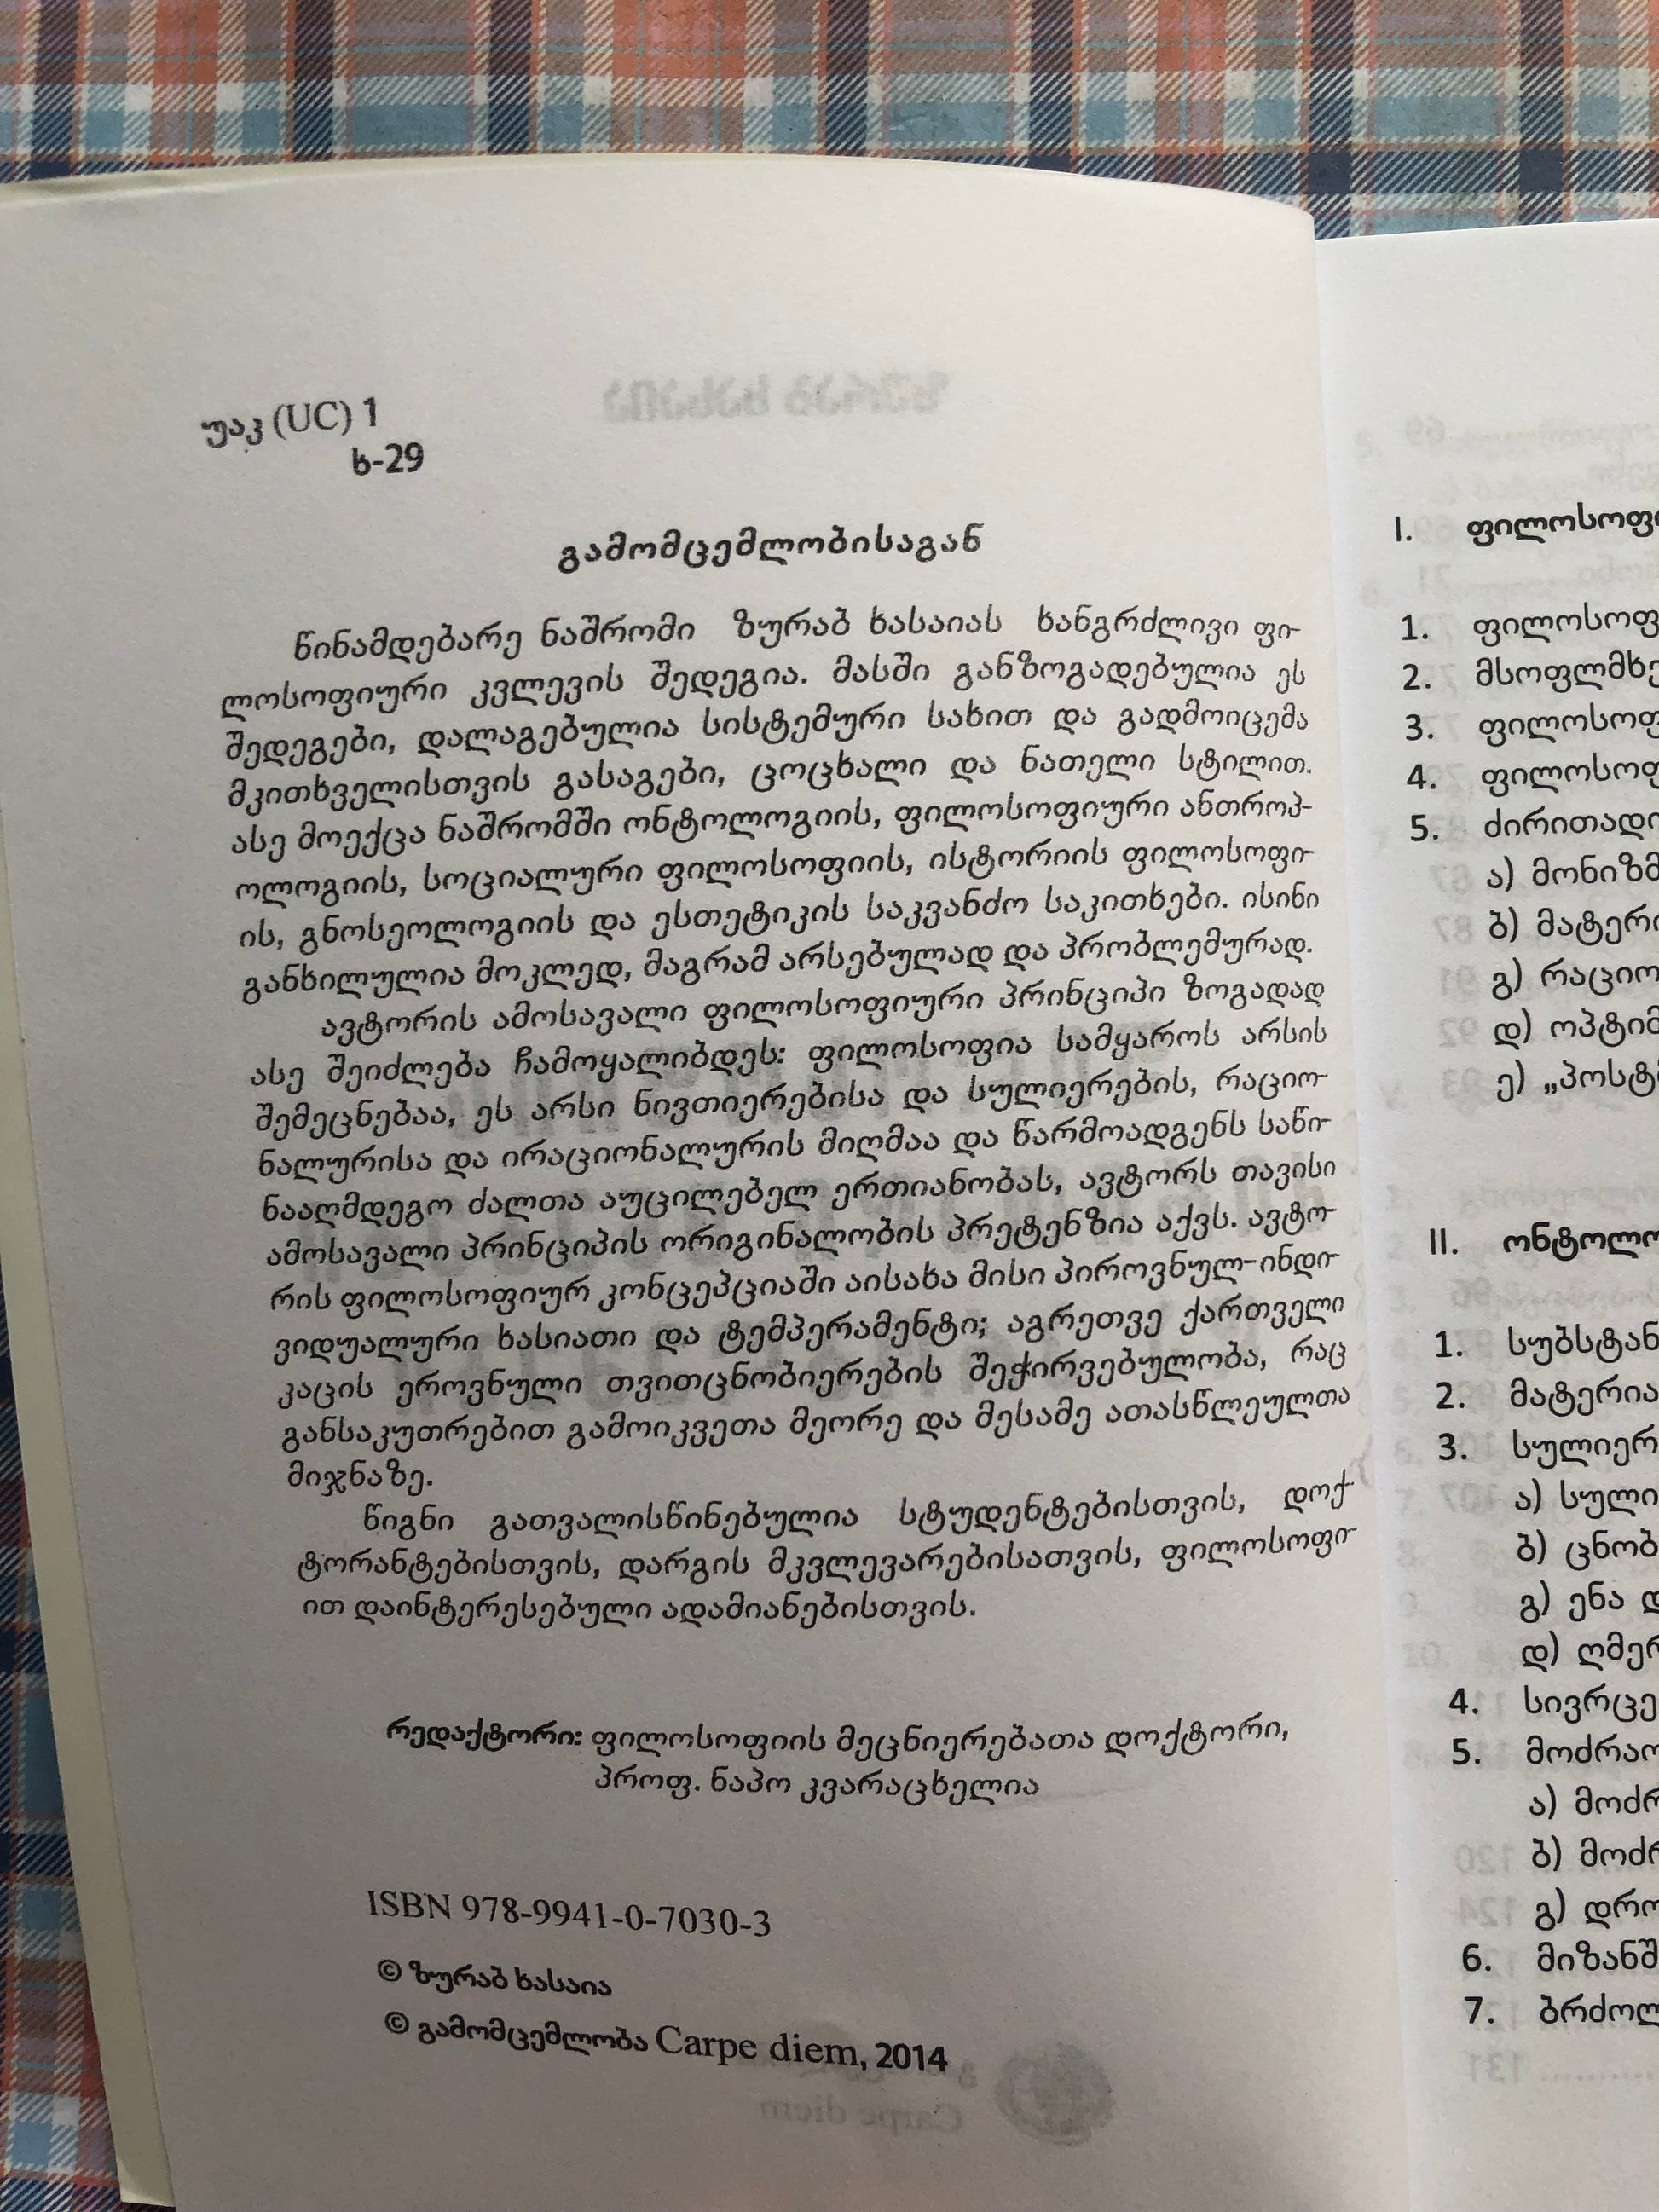 უაკ (UC) 1
ხ-29
გამომცემლობისაგან
წინამდებარე ნაშრომი ზურაბ ხასაიას ხანგრძლივი ფი-
ლოსოფიური კვლევის შედეგია. მასში განზოგადებულია ეს
შედეგები, დალაგებულია სისტემური სახით და გადმოიცემა
მკითხველისთვის გასაგები, ცოცხალი და ნათელი სტილით.
ასე მოექცა ნაშრომში ონტოლოგიის, ფილოსოფიური ანთროპ-
ოლოგიის, სოციალური ფილოსოფიის, ისტორიის ფილოსოფი-
ის, გნოსეოლოგიის და ესთეტიკის საკვანძო საკითხები. ისინი
განხილულია მოკლედ, მაგრამ არსებულად და პრობლემურად.
ავტორის ამოსავალი ფილოსოფიური პრინციპი ზოგადად
ასე შეიძლება ჩამოყალიბდეს: ფილოსოფია სამყაროს არსის
შემეცნებაა, ეს არსი ნივთიერებისა და სულიერების, რაციო-
ნალურისა და ირაციონალურის მიღმაა და წარმოადგენს საწი-
ნააღმდეგო ძალთა აუცილებელ ერთიანობას, ავტორს თავისი
ამოსავალი პრინციპის ორიგინალობის პრეტენზია აქვს. ავტო-
რის ფილოსოფიურ კონცეპციაში აისახა მისი პიროვნულ-ინდი-
ვიდუალური ხასიათი და ტემპერამენტი; აგრეთვე ქართველი
კაცის ეროვნული თვითცნობიერების შეჭირვებულობა, რაც
განსაკუთრებით გამოიკვეთა მეორე და მესამე ათასწლეულთა
მიჯნაზე.
წიგნი გათვალისწინებულია სტუდენტებისთვის, დოქ-
ტორანტებისთვის, დარგის მკვლევარებისათვის, ფილოსოფი-
ით დაინტერესებული ადამიანებისთვის.
რედაქტორი: ფილოსოფიის მეცნიერებათა დოქტორი,
პროფ. ნაპო კვარაცხელია
ISBN 978-9941-0-7030-3
© ზურაბ ხასაია
© გამომცემლობა Carpe diem, 2014
I. ფილოსოფი
1. ფილოსოფ
2. მსოფლმხე
3. ფილოსოფ
4. ფილოსოფ
5. ძირითადი
ა) მონიზმ
ბ) მატერი
გ) რაციო
დ) ოპტიმ
ე) „პოსტ
II. ონტოლო
1. სუბსტან
2. მატერია
3. სულიერ
ა) სული
ბ) ცნობ
გ) ენა დ
დ) ღმერ
4. სივრცე
5. მოძრაო
ა) მოძრ
ბ) მოძრ
გ) დრო
6. მიზანშ
7. ბრძოლ